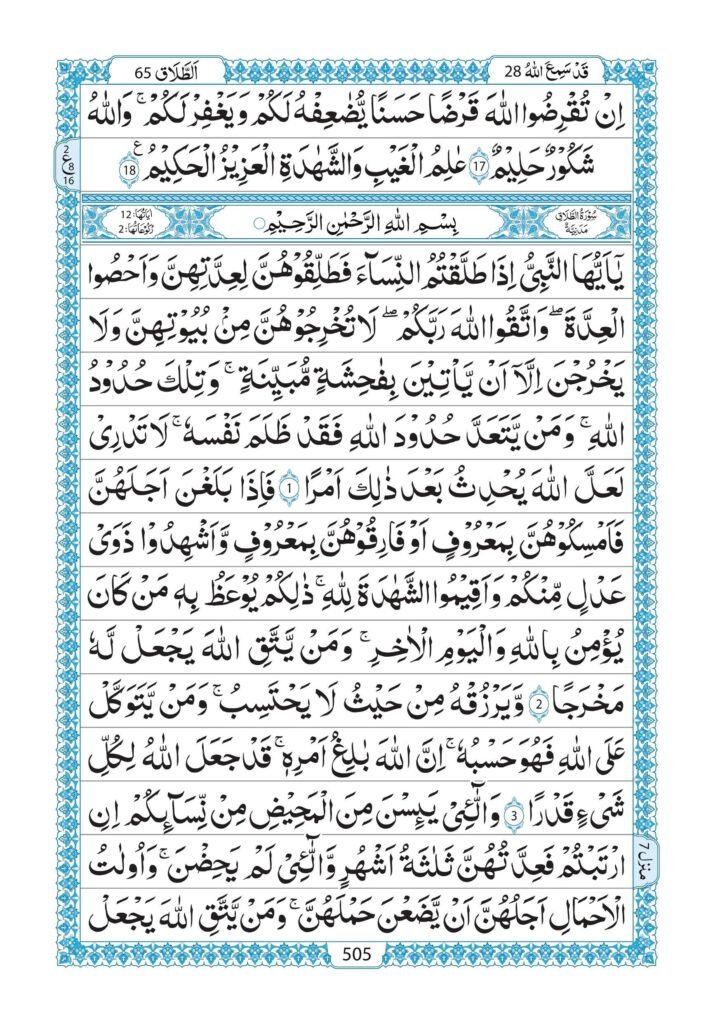 قَدْ سَمِعَ اللّٰهُ 28
اَلطَّلَاق 65
اِنْ تُقْرِضُوا اللّٰهَ قَرْضًا حَسَنًا يُّضٰعِفْهُ لَكُمْ وَيَغْفِرْ لَكُمْ ۚ وَاللّٰهُ
شَكُوْرٌ حَلِيْمٌ 17 عٰلِمُ الْغَيْبِ وَالشَّهٰدَةِ الْعَزِيْزُ الْحَكِيْمُ 18
2 ع 8 16
سُوْرَةُ الطَّلَاقِ مَدَنِيَّةٌ
بِسْمِ اللّٰهِ الرَّحْمٰنِ الرَّحِيْمِ
اٰيَاتُهَا: 12
رُكُوْعَاتُهَا: 2
يٰٓاَيُّهَا النَّبِىُّ اِذَا طَلَّقْتُمُ النِّسَآءَ فَطَلِّقُوْهُنَّ لِعِدَّتِهِنَّ وَاَحْصُوا
الْعِدَّةَ ۖ وَاتَّقُوا اللّٰهَ رَبَّكُمْ ۖ لَا تُخْرِجُوْهُنَّ مِنْۢ بُيُوْتِهِنَّ وَلَا
يَخْرُجْنَ اِلَّآ اَنْ يَّاْتِيْنَ بِفٰحِشَةٍ مُّبَيِّنَةٍ ۚ وَتِلْكَ حُدُوْدُ
اللّٰهِ ۚ وَمَنْ يَّتَعَدَّ حُدُوْدَ اللّٰهِ فَقَدْ ظَلَمَ نَفْسَهٗ ۚ لَا تَدْرِىْ
لَعَلَّ اللّٰهَ يُحْدِثُ بَعْدَ ذٰلِكَ اَمْرًا 1 فَاِذَا بَلَغْنَ اَجَلَهُنَّ
فَاَمْسِكُوْهُنَّ بِمَعْرُوْفٍ اَوْ فَارِقُوْهُنَّ بِمَعْرُوْفٍ وَّاَشْهِدُوْا ذَوَىْ
عَدْلٍ مِّنْكُمْ وَاَقِيْمُوا الشَّهٰدَةَ لِلّٰهِ ۚ ذٰلِكُمْ يُوْعَظُ بِهٖ مَنْ كَانَ
يُؤْمِنُ بِاللّٰهِ وَالْيَوْمِ الْاٰخِرِ ۚ وَمَنْ يَّتَّقِ اللّٰهَ يَجْعَلْ لَّهٗ
مَخْرَجًا 2 وَّيَرْزُقْهُ مِنْ حَيْثُ لَا يَحْتَسِبُ ۚ وَمَنْ يَّتَوَكَّلْ
عَلَى اللّٰهِ فَهُوَ حَسْبُهٗ ۚ اِنَّ اللّٰهَ بَالِغُ اَمْرِهٖ ۚ قَدْ جَعَلَ اللّٰهُ لِكُلِّ
شَىْءٍ قَدْرًا 3 وَالّٰٓـئِىْ يَئِسْنَ مِنَ الْمَحِيْضِ مِنْ نِّسَآئِكُمْ اِنِ
ارْتَبْتُمْ فَعِدَّتُهُنَّ ثَلٰثَةُ اَشْهُرٍ وَّالّٰٓـئِىْ لَمْ يَحِضْنَ ۚ وَاُولٰتُ
الْاَحْمَالِ اَجَلُهُنَّ اَنْ يَّضَعْنَ حَمْلَهُنَّ ۚ وَمَنْ يَّتَّقِ اللّٰهَ يَجْعَلْ
منزل 7
505